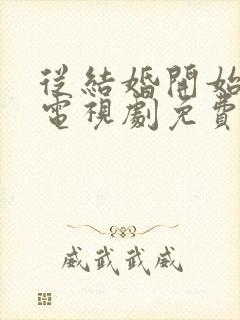 從結婚開始
電視劇免費
威武武威